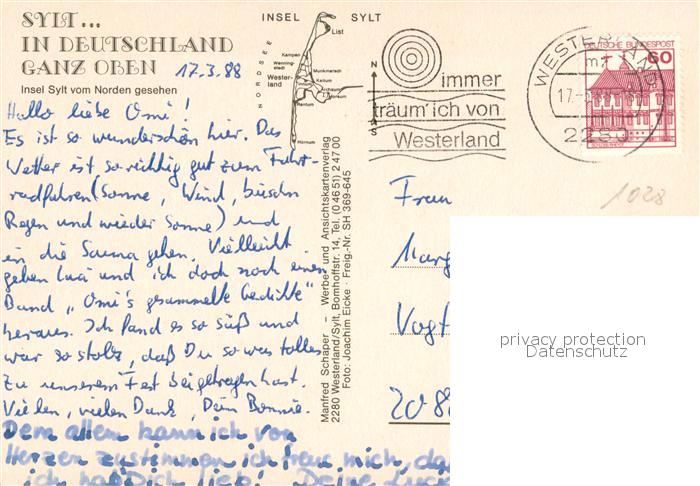 SYLT...
IN DEUTSCHLAND
GANZ OBEN
17.3.88
Insel Sylt vom Norden gesehen
Hallo liebe Omi!
Es ist so wunderschön hier. Das
Wetter ist so richtig gut zum Fahr-
radfahren (Sonne, Wind, bischn
Regen und wieder Sonne) und
in die Sauna gehen. Vielleicht
geben Luci und ich doch noch einen
Band „Omi's gesammelte Gedichte"
heraus. Ich fand es so süß und
war so stolz, daß Du so was tolles
zu unserem Fest beigetragen hast.
Vielen, vielen Dank, Dein Bonnie.
Dem allem kann ich von
Herzen zustimmen ich freue mich, da
ich hab Dich lieb! Deine Lucie
INSEL SYLT
NORDSEE
List
Kampen
Wenning-
stedt
Wester-
land
Munkmarsch
Keitum
Archsum
Rantum
Hörnum
N
S
Manfred Schaper - Werbe- und Ansichtskartenverlag
2280 Westerland/Sylt, Bomhoffstr. 14, Tel. (04651) 24700
Foto: Joachim Eicke · Freig.-Nr. SH 369-645
immer
träum' ich von
Westerland
WESTERLAND
mz
17.-
2280
DEUTSCHE BUNDESPOST
60
1028
Frau
Marg
Vogt
208
privacy protection
Datenschutz